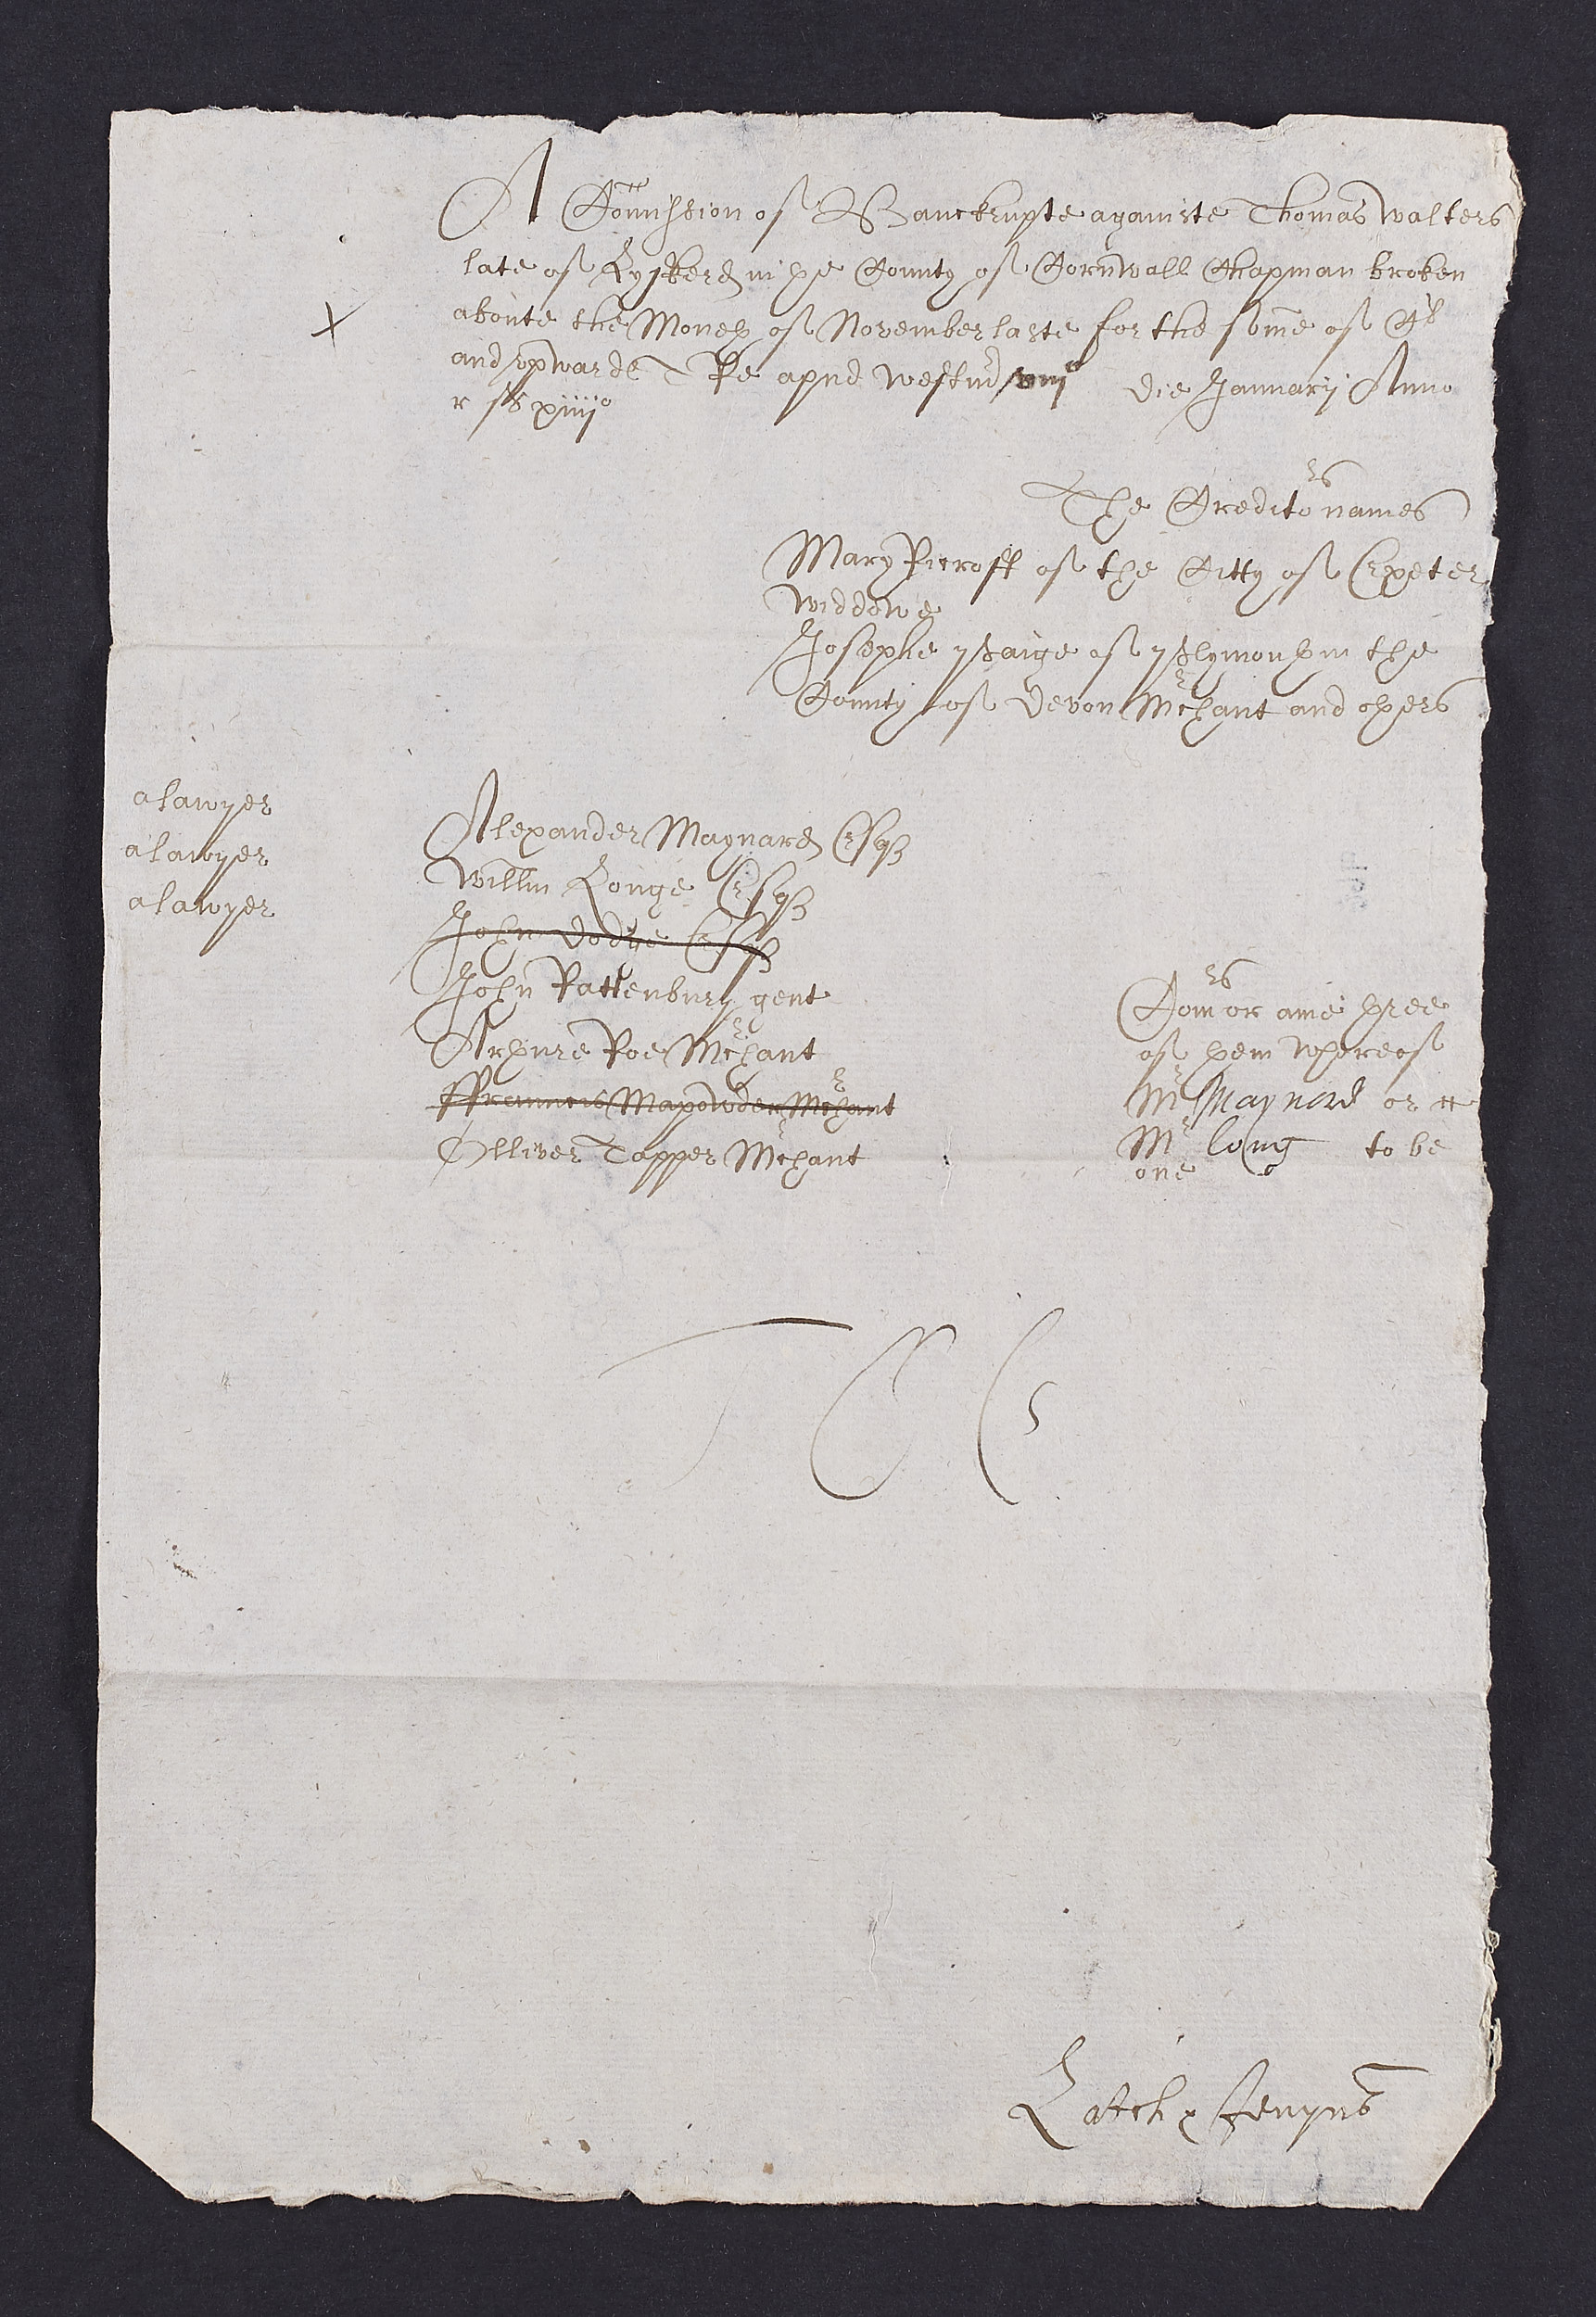 A Com̄ission of Banckrupte againste Thomas Walters
late of Lyskerd in þe County of Cornwall Chapman broken
X
aboute the Moneþ of November laste for the som̄e of Cˡ
and vpwards Te apud Westm̄ viijᵒ die Januarij Anno
r Rs xiiijᵒ
The Creditoʳˢ names
Mary Picroft of the Citty of Exeter
widdowe
Josephe Paige of Plymouþ in the
County of Devon Mʳchant and oþers
a lawyer
a lawyer
a lawyer
Alexander Maynard Esqʒ
Willm̄ Longe Esqʒ
John Dodge Esqʒ
John Rattenbury gent
Arþure Roe Mʳchant
ffrauncis Mapowder Mʳchant
Olliver Tapper Mʳchant
Comʳˢ or anie þree
of þem whereof
Mʳ Maynard or
Mʳ long to be
one
T C S
Latch & Jenyns